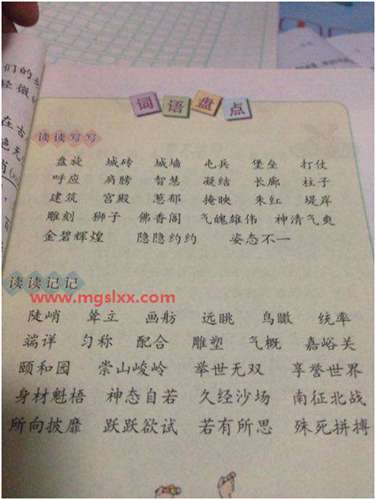 词语盘点
读读写写
盘旋 城砖 城墙 屯兵 堡垒 打仗
呼应 肩膀 智慧 凝结 长廊 柱子
建筑 宫殿 葱郁 掩映 朱红 堤岸
雕刻 狮子 佛香阁 气魄雄伟 神清气爽
金碧辉煌 隐隐约约 姿态不一
读读记记
www.mgslxx.com
陡峭 耸立 画舫 远眺 鸟瞰 统率
端详 匀称 配合 雕塑 气概 嘉峪关
颐和园 崇山峻岭 举世无双 享誉世界
身材魁梧 神态自若 久经沙场 南征北战
所向披靡 跃跃欲试 若有所思 殊死拼搏
们的
轻微
在古